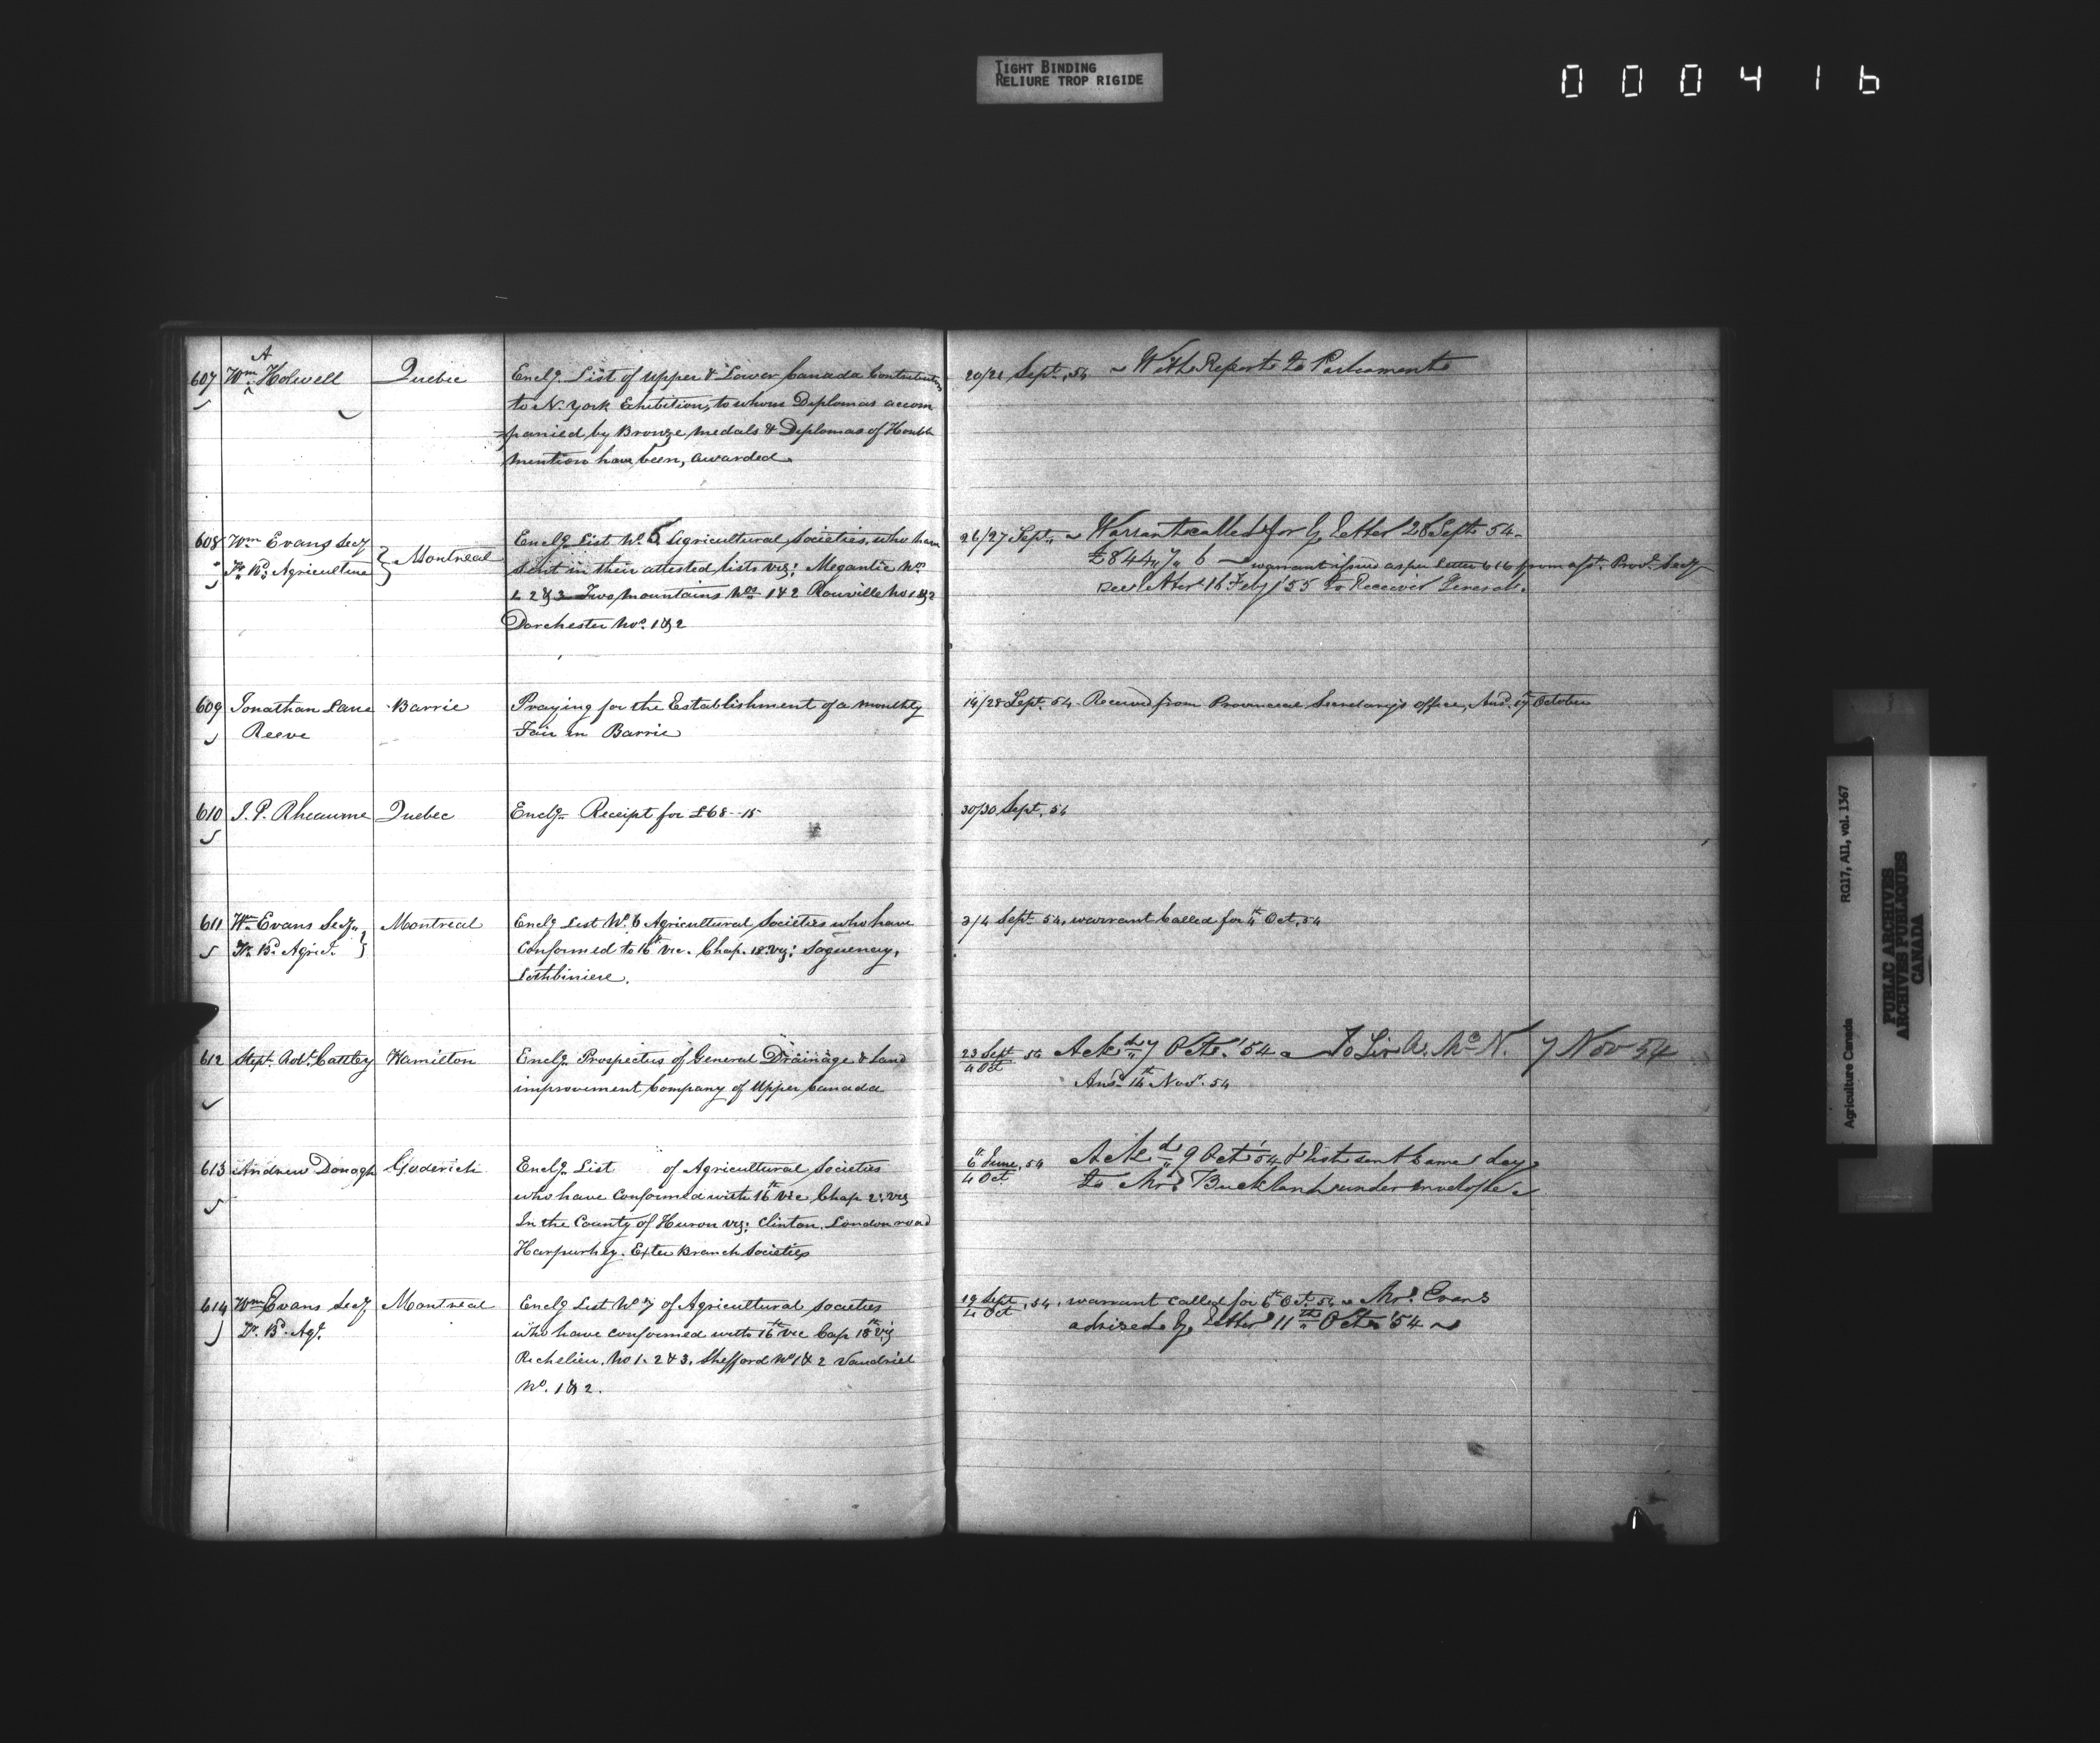 TIGHT BINDING
RELIURE TROP RIGIDE
000416
607 Wm A Holwell Quebec Enclg. List of Upper & Lower Canada Contributors
to N. York Exhibition, to whom Diplomas accom
panied by Bronze medals & Diplomas of Honble
mention have been, awarded
20/21 Sept. 54 With Report to Parliament
608 Wm Evans Secy
Bd Agriculture } Montreal
Enclg List No 5 Agricultural Societies, who have
sent in their attested lists viz: Megantic Nos
1. 2 & 3 Two Mountains Nos 1 & 2 Rouville No 1 & 2
Dorchester Nos. 1 & 2
26/27 Sept. Warrant called for by letter 28 Sept 54
£844 " 7 " 6 warrant issued as per Letter 616 from asst. Prov. Secy
see letter 16 Feby /55 to Receiver General.
609 Jonathan Lane Barrie Praying for the Establishment of a monthly
Reeve Fair in Barrie
14/28 Sept. 54 Received from Provincial Secretary's office, Ansd. 17 October
610 J. P. Rheaume Quebec Enclg Receipt for £68--15
30/30 Sept. 54
611 Wm Evans Secy Montreal Enclg List No. 6 Agricultural Societies who have
Bd. Agric. } Conformed to 16th Vic. Chap. 18. Viz: Saguenay,
Lotbiniere.
3/4 Sept. 54. warrant Called for 4th Oct, 54
612 Stept. Robt. Cattley Hamilton Enclg Prospectus of General Drainage & Land
improvement Company of Upper Canada
23 Sept 54
4 Oct
Ackd 7 Oct. '54 To Sir A. McN. 7 Nov 54
Ansd 14th Nov. 54
613 Andrew Donagh Goderich Enclg List of Agricultural Societies
who have Conformed with 16th Vic Chap 2. viz
In the County of Huron viz: Clinton, London road
Harpurhey. Exeter Branch Societies
6th June, 54
4 Oct
Ackd 9 Oct '54 & List sent same day
to Mr. Buckland under envelope
614 Wm Evans Secy Montreal Enclg List No 7 of Agricultural Societies
Bd. Agr. who have conformed with 16th Vic Cap 18th Viz
Richelieu. No 1. 2 & 3. Shefford No 1 & 2 Vaudriel
No. 1 & 2.
19 Sept, 54.
4 Oct
warrant called for 6th Oct. 54 Mr. Evans
advised by letter 11th Oct 54
Agriculture Canada RG17, AII, vol. 1367
PUBLIC ARCHIVES
ARCHIVES PUBLIQUES
CANADA